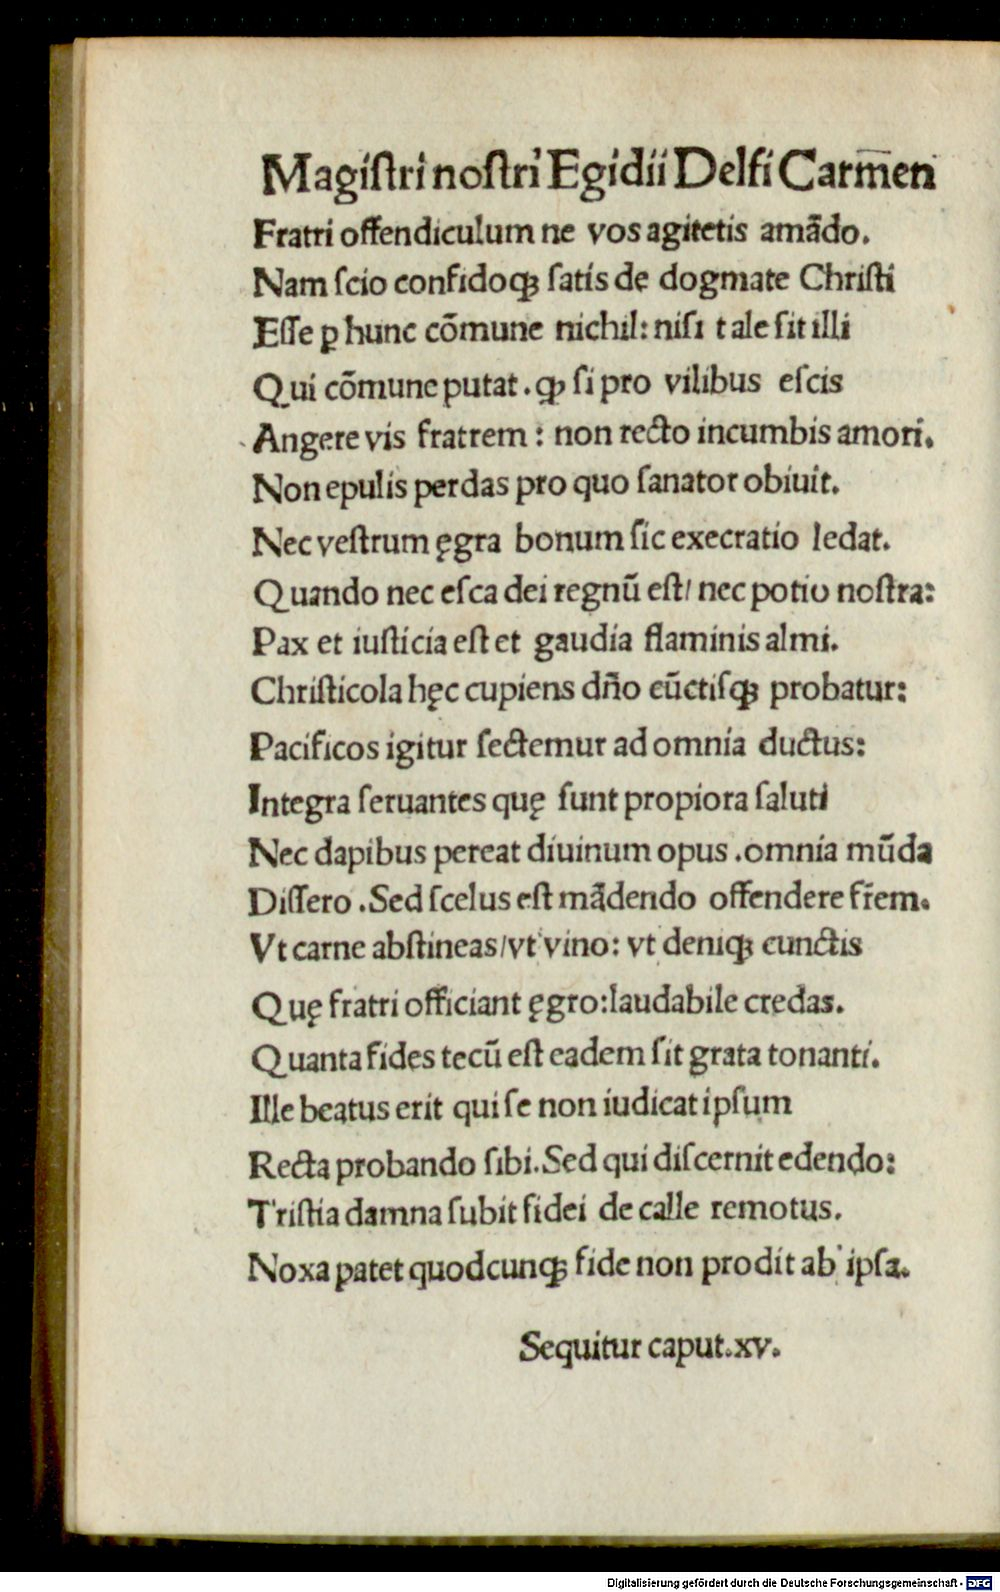 Magiſtri noſtri Egidii Delfi Carm̄en
Fratri offendiculum ne vos agitetis amādo.
Nam ſcio confidoqꝫ ſatis de dogmate Chriſti
Eſſe ꝑ hunc cōmune nichil: niſi tale ſit illi
Qui cōmune putat .ꝙ ſi pro vilibus eſcis
Angere vis fratrem : non recto incumbis amori.
Non epulis perdas pro quo ſanator obiuit.
Nec veſtrum ęgra bonum ſic execratio ledat.
Quando nec eſca dei regnū eſt/ nec potio noſtra:
Pax et iuſticia eſt et gaudia flaminis almi.
Chriſticola hęc cupiens dn̄o cūctiſqꝫ probatur:
Pacificos igitur ſectemur ad omnia ductus:
Integra ſeruantes quę ſunt propiora ſaluti
Nec dapibus pereat diuinum opus .omnia mūda
Diſſero .Sed ſcelus eſt mādendo offendere fr̄em.
Vt carne abſtineas/vt vino: vt deniqꝫ cunctis
Quę fratri officiant ęgro:laudabile credas.
Quanta fides tecū eſt eadem ſit grata tonanti.
Ille beatus erit qui ſe non iudicat ipſum
Recta probando ſibi.Sed qui diſcernit edendo:
Triſtia damna ſubit fidei de calle remotus.
Noxa patet quodcunqꝫ fide non prodit ab ipſa.
Sequitur caput.xv.
Digitalisierung gefördert durch die Deutsche Forschungsgemeinschaft - DFG